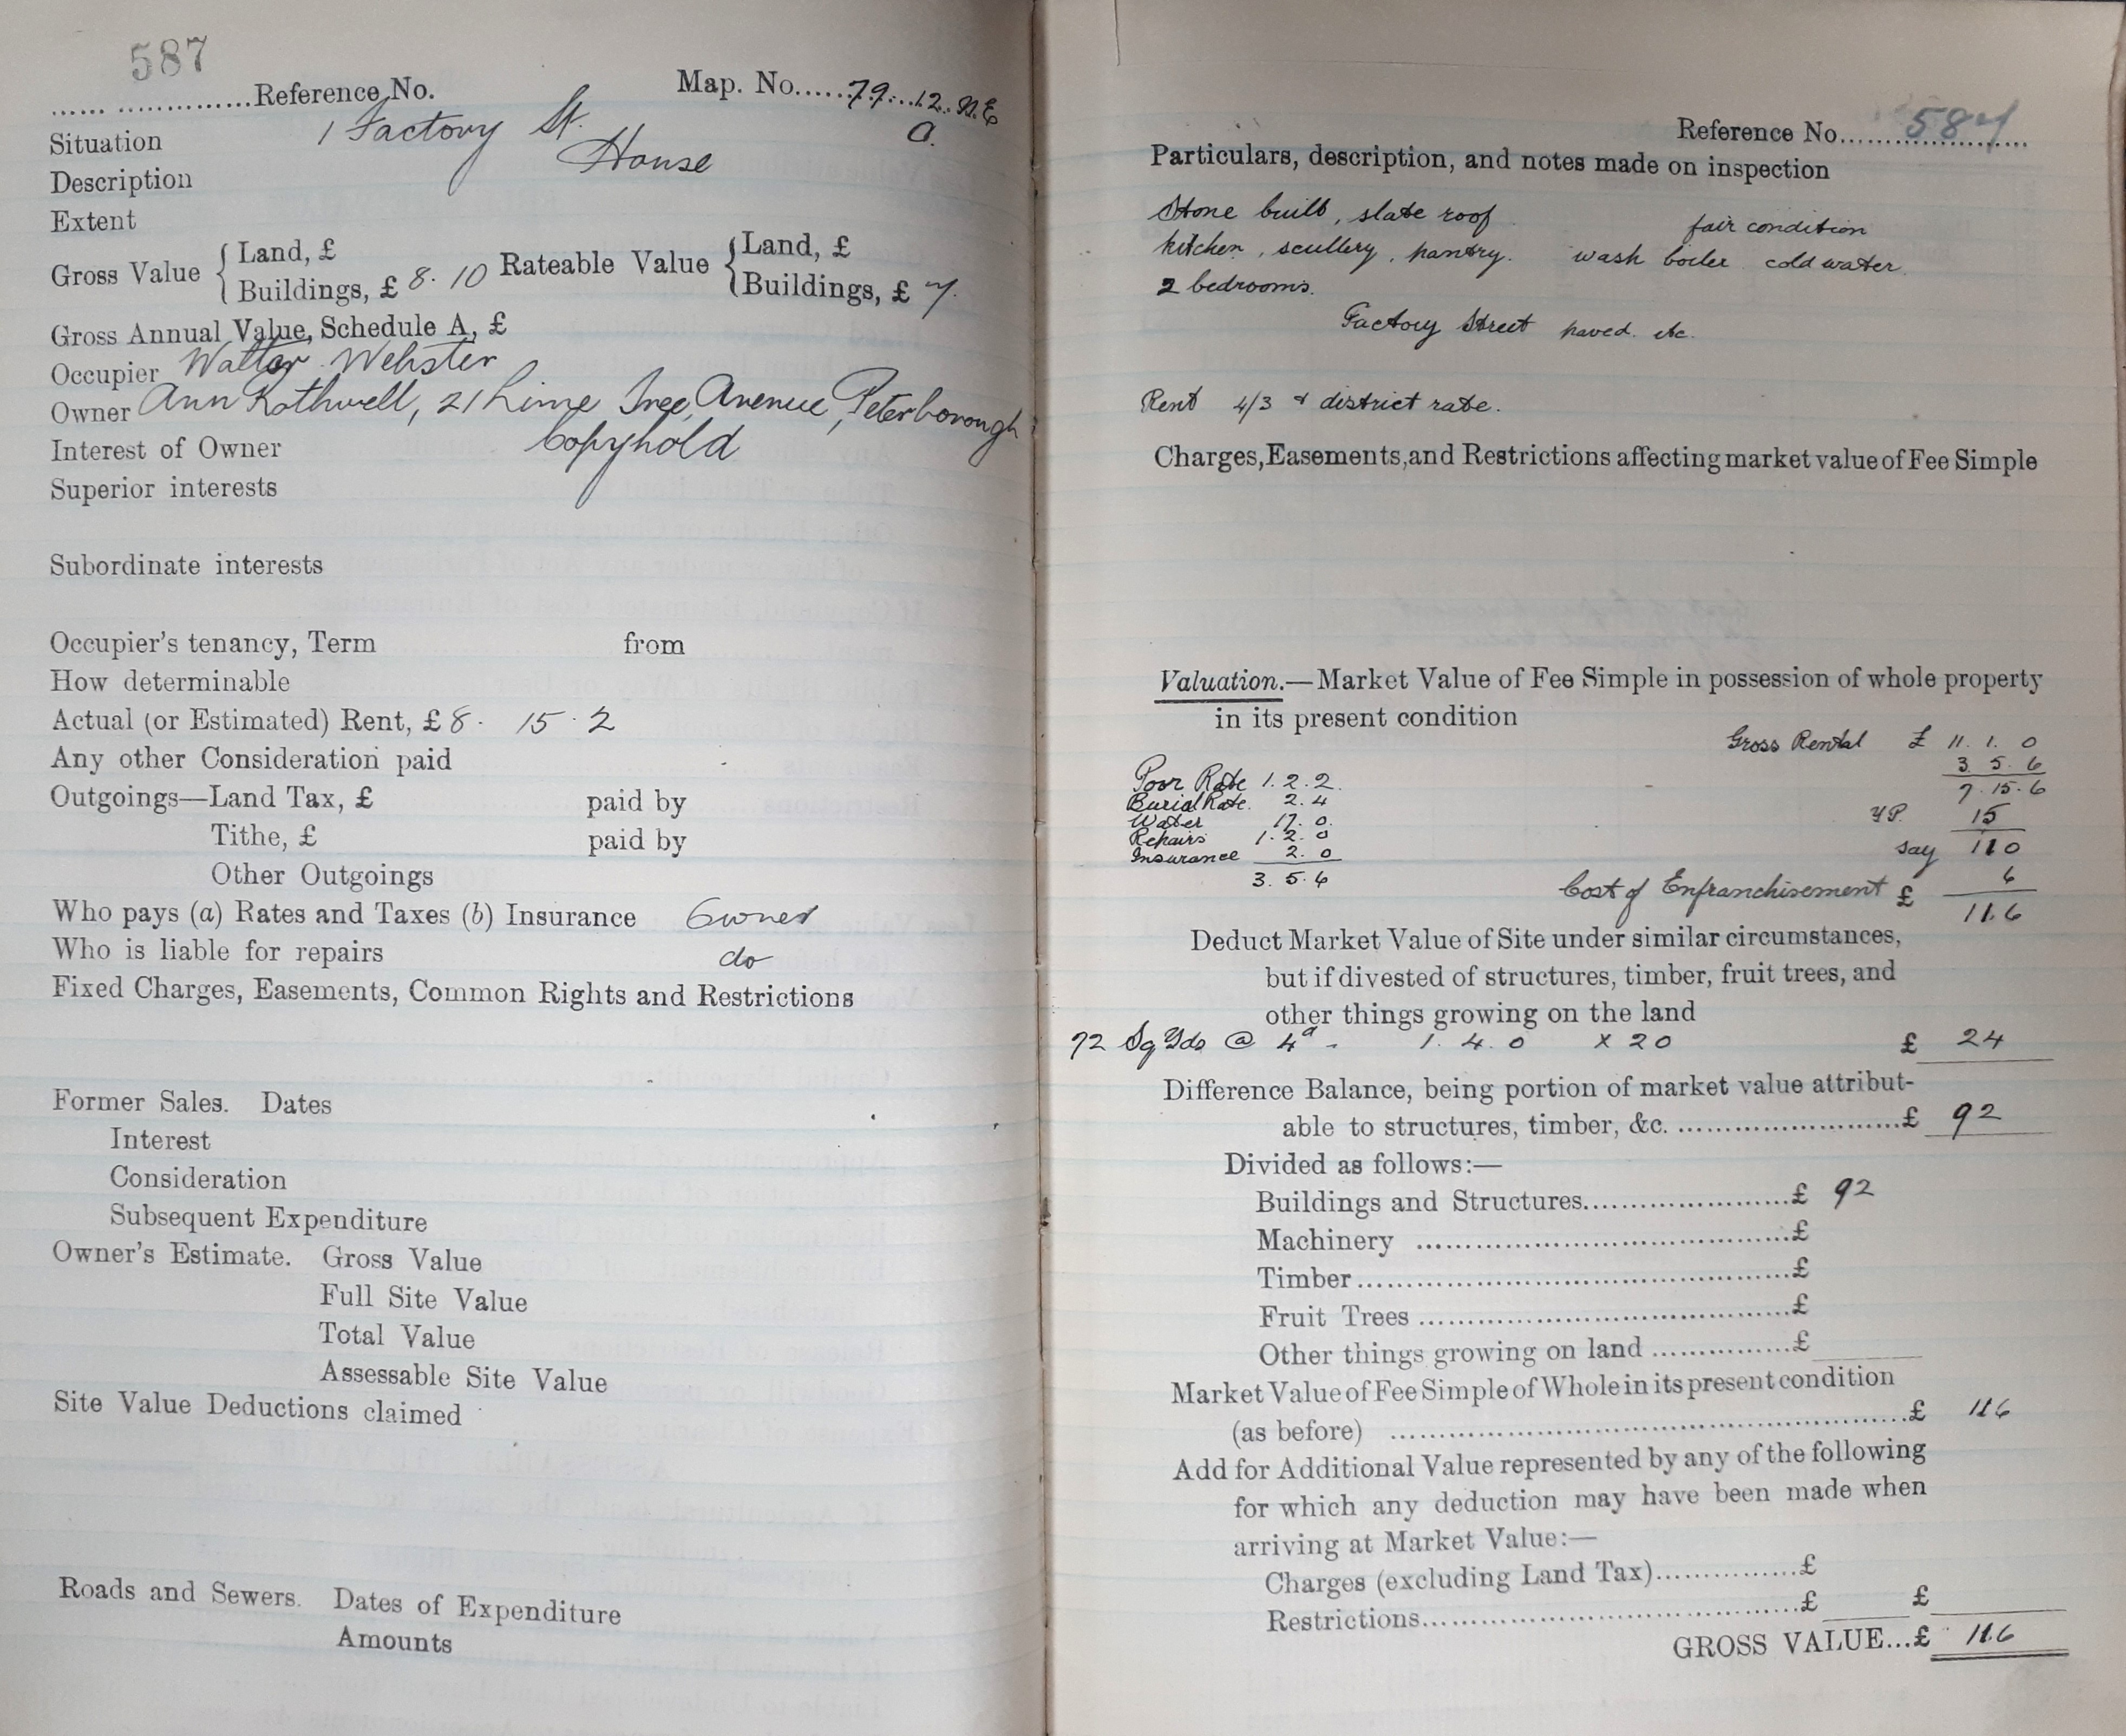 587
Reference No. Map. No. 79. 12. N.E
a.
Situation 1 Factory St.
Description House
Extent
Gross Value { Land, £ Rateable Value { Land, £
Buildings, £ 8. 10 Buildings, £ 7.
Gross Annual Value, Schedule A, £
Occupier Walter Webster
Owner Ann Rothwell, 21 Lime Tree Avenue, Peterborough
Interest of Owner Copyhold
Superior interests
Subordinate interests
Occupier's tenancy, Term from
How determinable
Actual (or Estimated) Rent, £ 8. 15. 2
Any other Consideration paid
Outgoings—Land Tax, £ paid by
Tithe, £ paid by
Other Outgoings
Who pays (a) Rates and Taxes (b) Insurance Owner
Who is liable for repairs do
Fixed Charges, Easements, Common Rights and Restrictions
Former Sales. Dates
Interest
Consideration
Subsequent Expenditure
Owner's Estimate. Gross Value
Full Site Value
Total Value
Assessable Site Value
Site Value Deductions claimed
Roads and Sewers. Dates of Expenditure
Amounts
Reference No. 587
Particulars, description, and notes made on inspection
Stone built, slate roof fair condition
kitchen, scullery, pantry. wash boiler cold water.
2 bedrooms.
Factory Street paved. etc.
Rent 4/3 & district rate.
Charges, Easements, and Restrictions affecting market value of Fee Simple
Valuation.—Market Value of Fee Simple in possession of whole property
in its present condition
Gross Rental £ 11. 1. 0
3. 5. 6
7. 15. 6
YP. 15
say 110
Cost of Enfranchisement £ 6
116
Poor Rate 1. 2. 2.
Burial Rate. 2. 4
Water 17. 0.
Repairs 1. 2. 0
Insurance 2. 0
3. 5. 6
Deduct Market Value of Site under similar circumstances,
but if divested of structures, timber, fruit trees, and
other things growing on the land
72 Sq Yds @ 4d - 1. 4. 0 x 20 £ 24
Difference Balance, being portion of market value attribut-
able to structures, timber, &c. £ 92
Divided as follows:—
Buildings and Structures £ 92
Machinery £
Timber £
Fruit Trees £
Other things growing on land £
Market Value of Fee Simple of Whole in its present condition
(as before) £ 116
Add for Additional Value represented by any of the following
for which any deduction may have been made when
arriving at Market Value:—
Charges (excluding Land Tax) £
Restrictions £ £
GROSS VALUE...£ 116